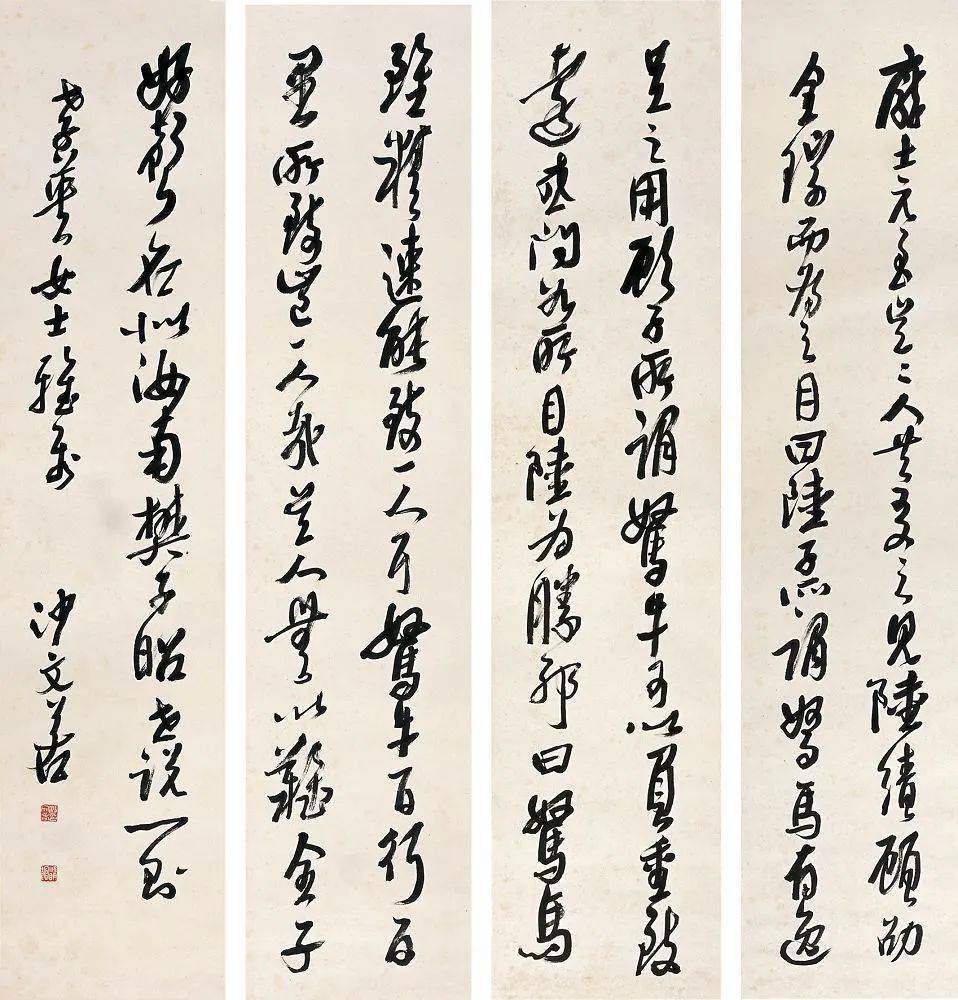 龐士元至吴々人并友之見陸績顧劭
全琮而为之目曰陸子所謂駑馬有逸
足之用顧子所謂駑牛可以負重致
遠或問如所目陸为勝邪曰駑馬
雖精速能致一人耳駑牛一日行百
里所致豈一人哉吴人無以難全子
好聲名似汝南樊子昭 世説一則
女士雅屬 沙文若